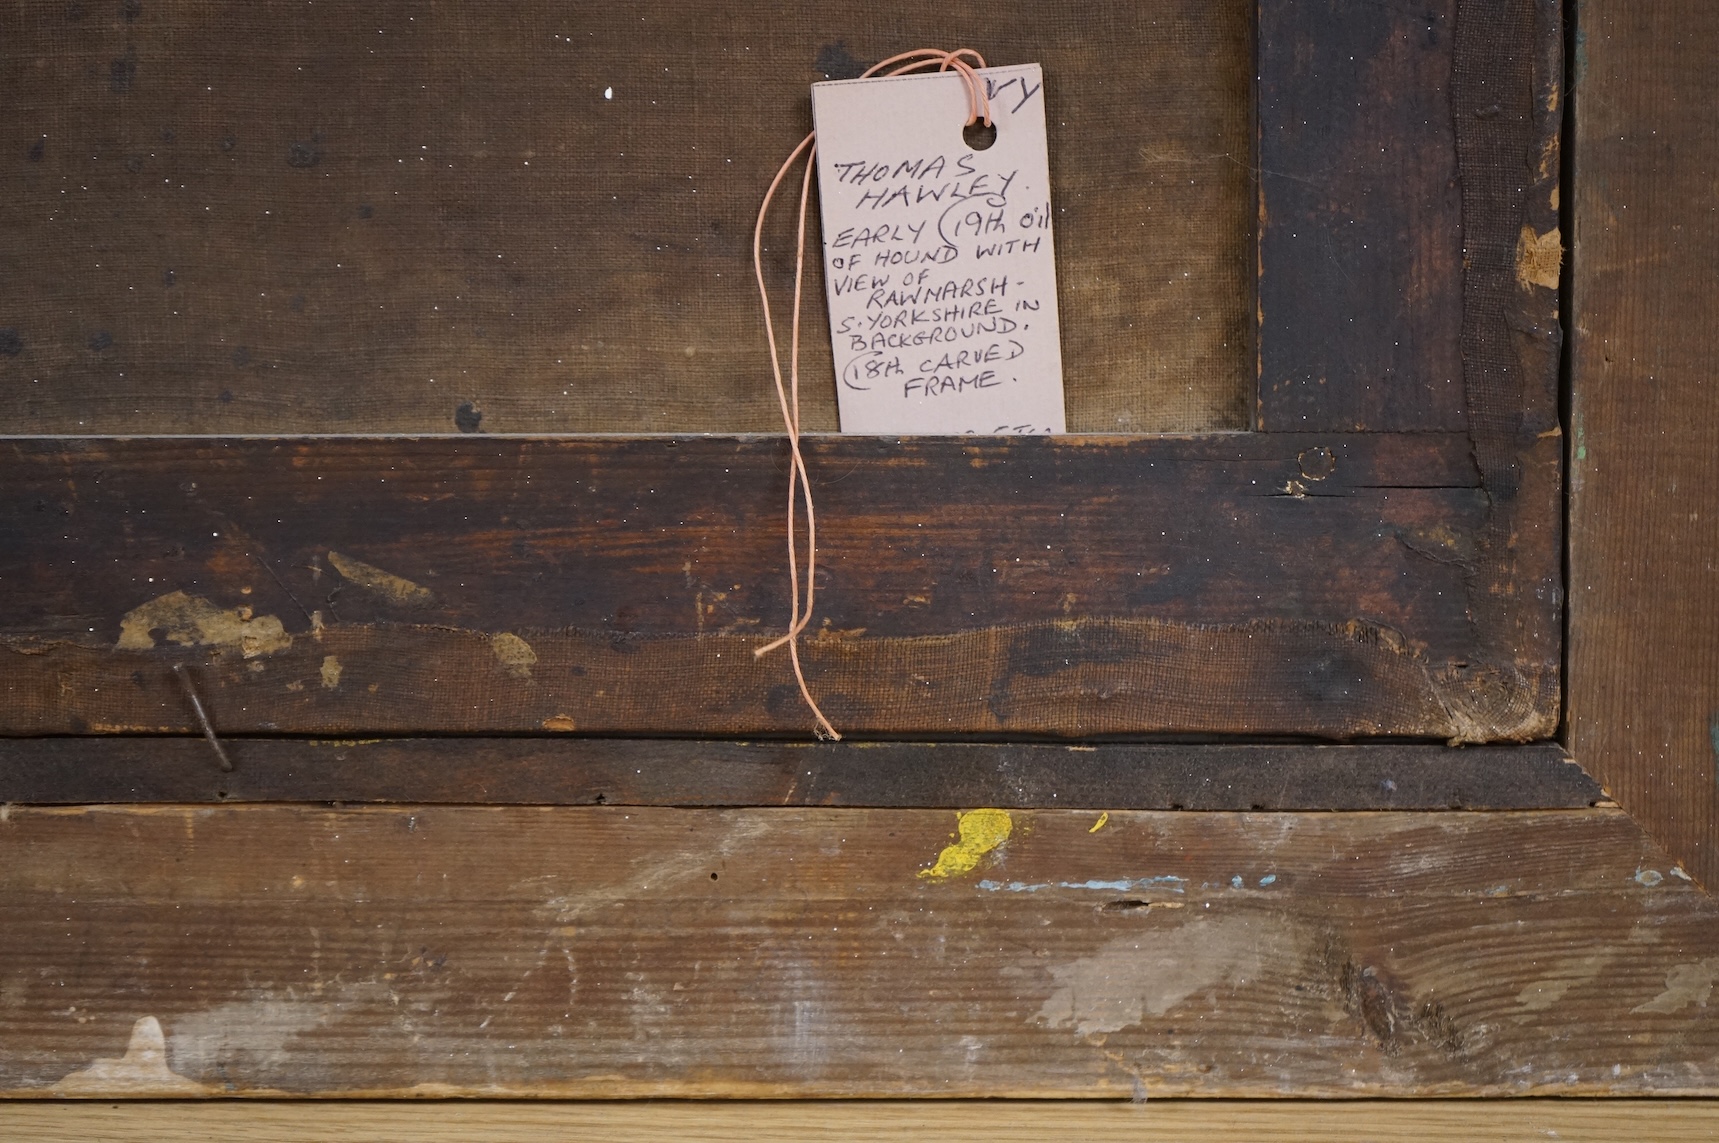 THOMAS
HAWLEY.
EARLY C19th Oil
OF HOUND WITH
VIEW OF
RAWMARSH -
S. YORKSHIRE IN
BACKGROUND.
C18th CARVED
FRAME.